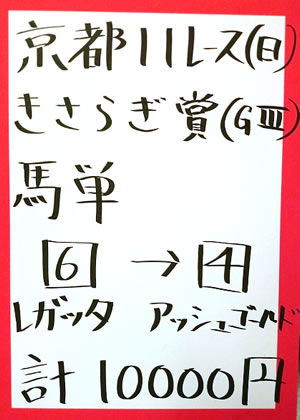 京都11レース(日)
きさらぎ賞(GⅢ)
馬単
6 → 4
レガッタ アッシュゴールド
計10000円